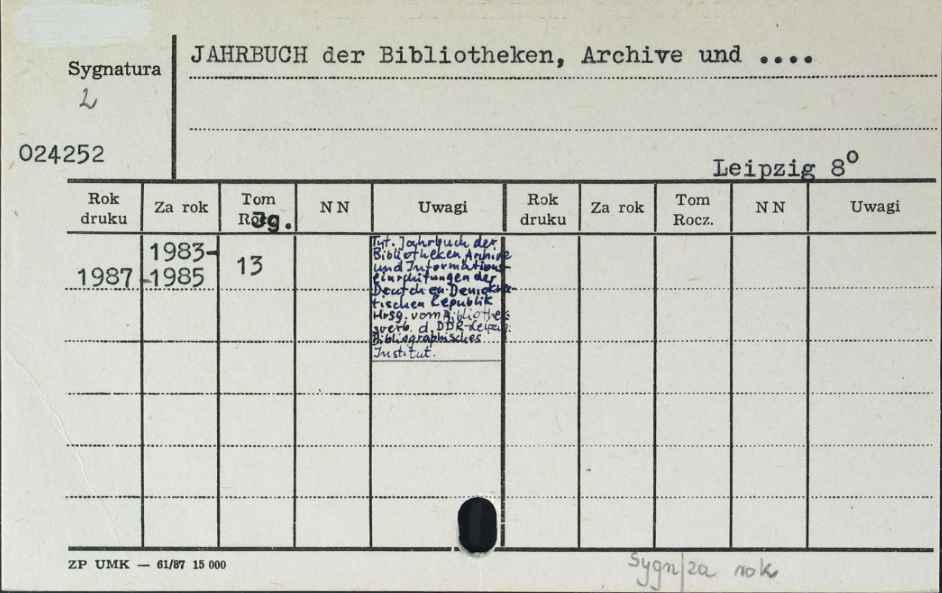 JAHRBUCH der Bibliotheken, Archive und ....
Sygnatura
2
024252
Leipzig 8°
Rok druku Za rok Tom Jg. N N Uwagi Rok druku Za rok Tom Rocz. N N Uwagi
1983-
1987 -1985 13
Tyt. Jahrbuch der
Bibliotheken Archive
und Informations-
einrichtungen der
Deutschen Demokra-
tischen Republik
Hrsg. vom Bibliothek
sverb. d. DDR-Leipzig:
Bibliographisches
Institut.
ZP UMK — 61/87 15 000
Sygn/za rok